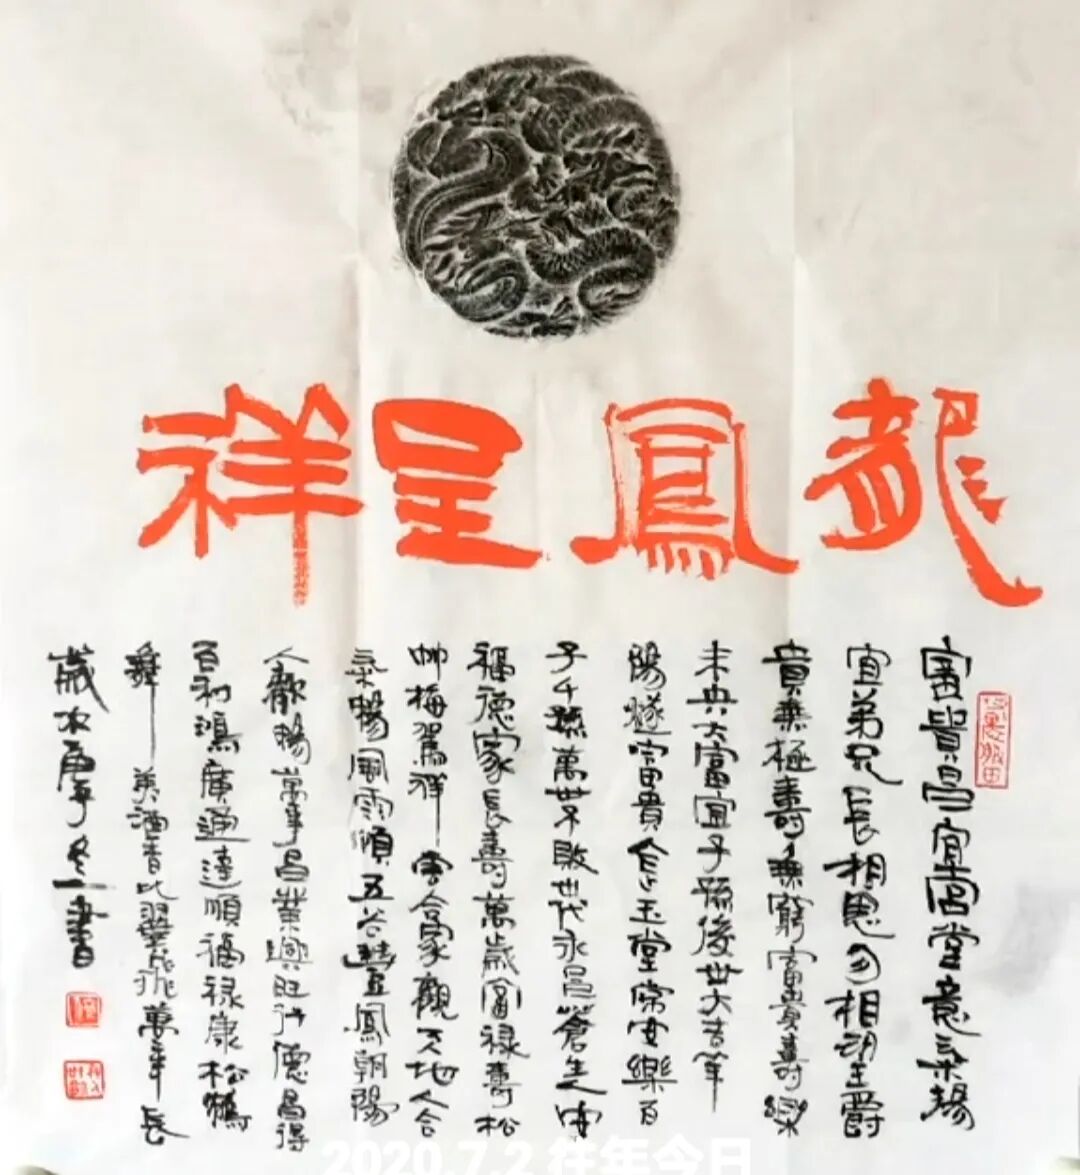 龍鳳呈祥
富貴昌宜宮堂意氣揚
宜弟兄長相思勿相忘爵
貴無極壽無窮富貴壽樂
未央大富宜子孫後世大吉羊
陽燧富貴作玉堂常安樂百
子千孫萬世不敗世代永昌蒼生安
福德家長壽萬歲富祿壽松
竹梅鶴祥雲合家觀天地人合
氣暢風雨順五谷豐鳳朝陽
人歡暢萬事昌業興旺行德昌得
百利鴻廣通達順福禄康松鶴
舞美酒香比翼飛萬年長
歲次庚子冬一書
2020.7.2 往年今日